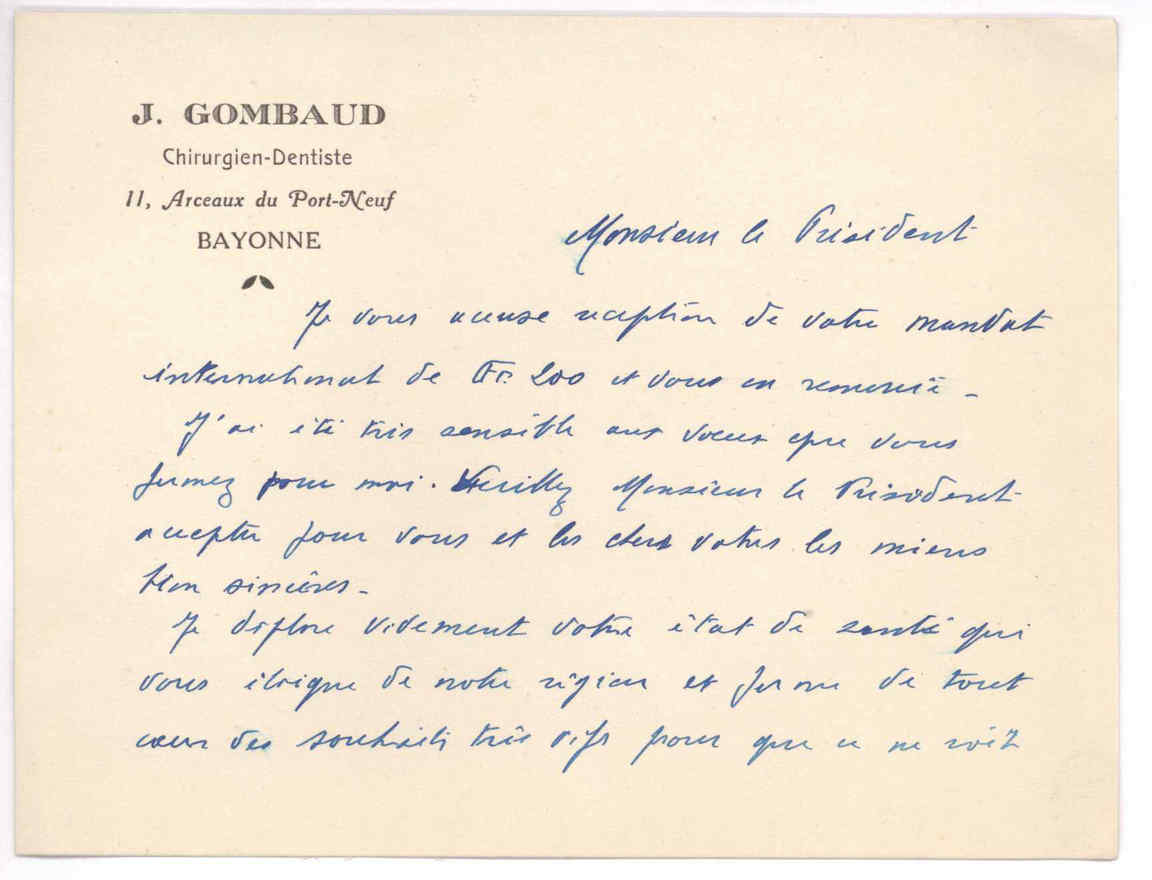 J. GOMBAUD
Chirurgien-Dentiste
11, Arceaux du Port-Neuf
BAYONNE
Monsieur le Président
Je vous accuse reception de votre mandat
international de Fr. 200 et vous en remercie -
J'ai été très sensible aux voeux que vous
formez pour moi. Veuillez Monsieur le Président
accepter pour vous et les chers votres les miens
bien sincères -
Je deplore vivement votre état de santé qui
vous éloigne de notre région et forme de tout
coeur des souhaits très vifs pour que ce ne soit